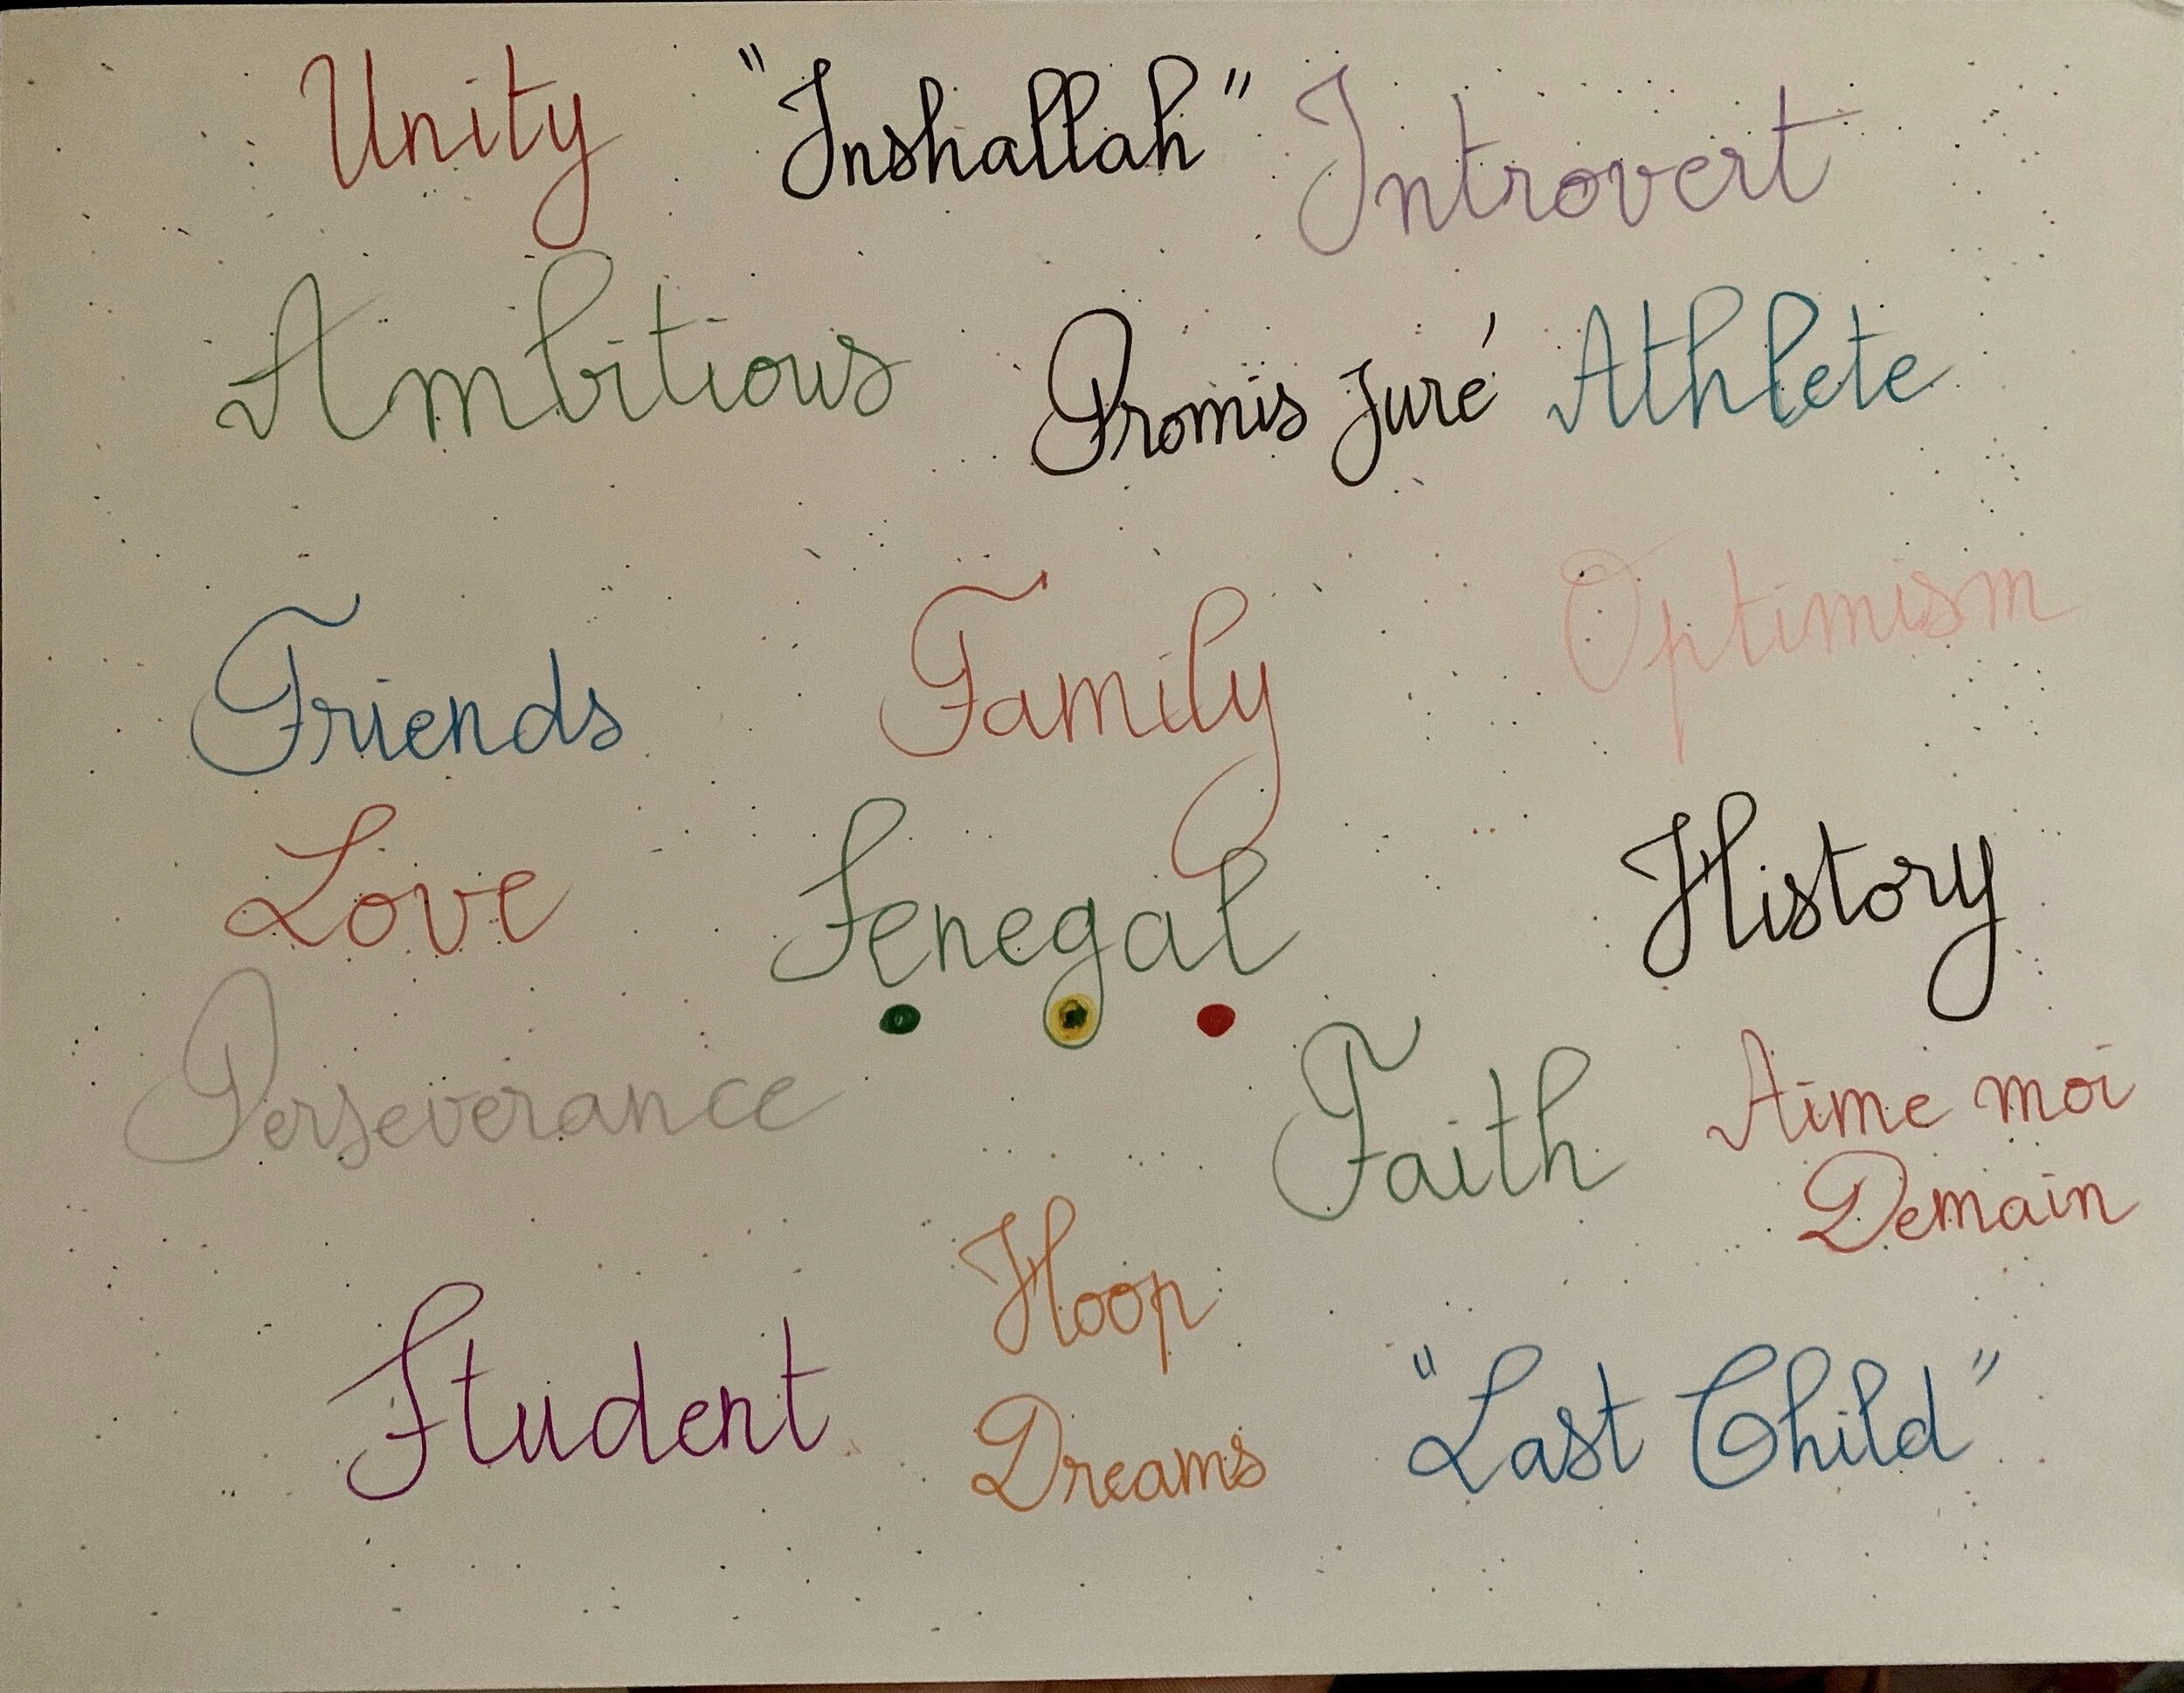 Unity "Inshallah" Introvert
Ambitious Promis Juré Athlete
Friends Family Optimism
Love Senegal History
Perseverance Faith Aime moi
Demain
Student Hoop
Dreams "Last Child"